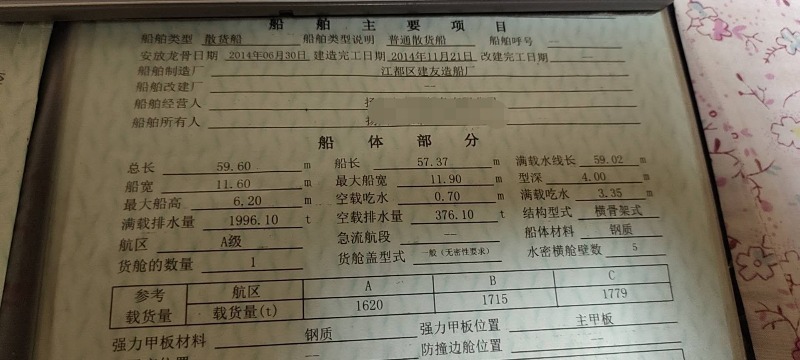 船舶主要项目
船舶类型 散货船 船舶类型说明 普通散货船 船舶呼号 —
安放龙骨日期 2014年06月30日 建造完工日期 2014年11月21日 改建完工日期 —
船舶制造厂 江都区建友造船厂
船舶改建厂 —
船舶经营人
船舶所有人
船体部分
总长 59.60 m 船长 57.37 m 满载水线长 59.02 m
船宽 11.60 m 最大船宽 11.90 m 型深 4.00 m
最大船高 6.20 m 空载吃水 0.70 m 满载吃水 3.35 m
满载排水量 1996.10 t 空载排水量 376.10 t 结构型式 横骨架式
航区 A级 急流航段 — 船体材料 钢质
货舱的数量 1 货舱盖型式 一般(无密性要求) 水密横舱壁数 5
参考载货量 航区 A B C
载货量(t) 1620 1715 1779
强力甲板材料 钢质 强力甲板位置 主甲板
防撞边舱位置 —